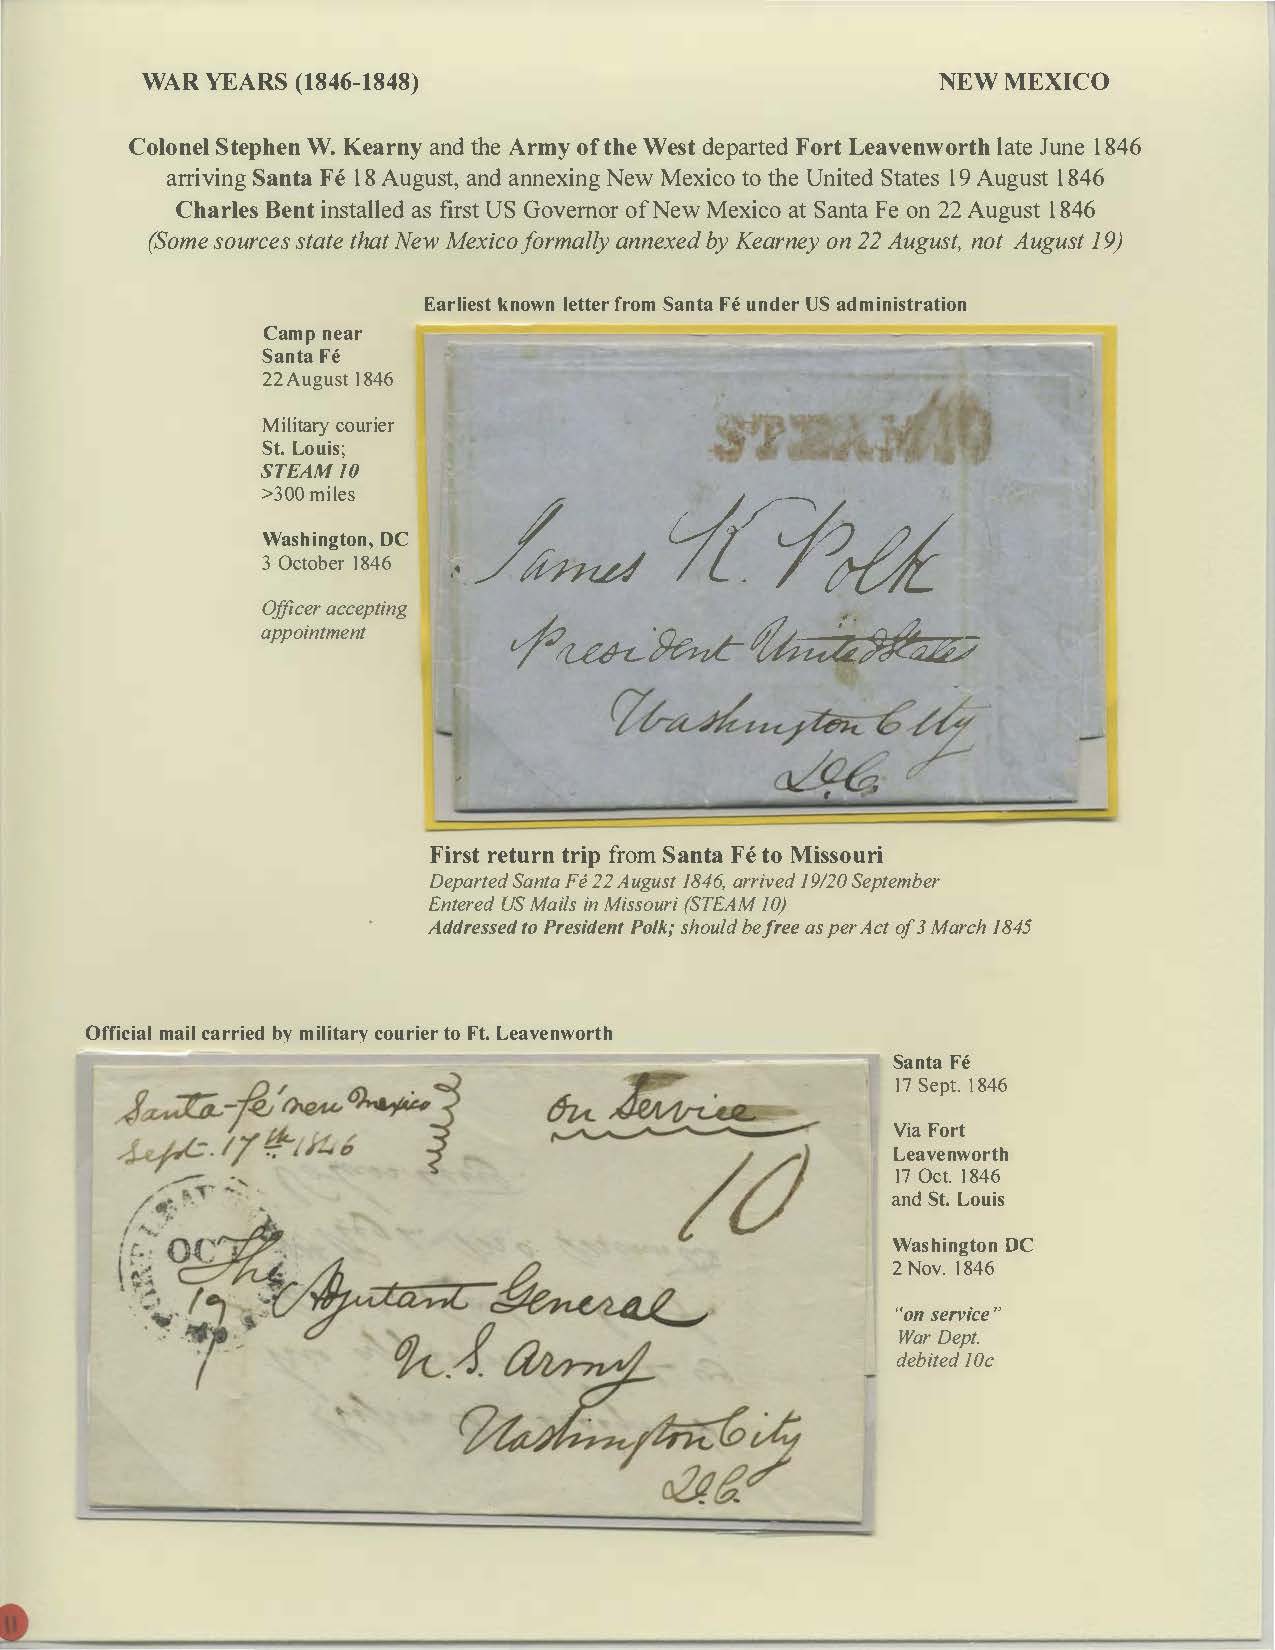 WAR YEARS (1846-1848) NEW MEXICO
Colonel Stephen W. Kearny and the Army of the West departed Fort Leavenworth late June 1846
arriving Santa Fé 18 August, and annexing New Mexico to the United States 19 August 1846
Charles Bent installed as first US Governor of New Mexico at Santa Fe on 22 August 1846
(Some sources state that New Mexico formally annexed by Kearney on 22 August, not August 19)
Earliest known letter from Santa Fé under US administration
Camp near
Santa Fé
22 August 1846
Military courier
St. Louis;
STEAM 10
>300 miles
Washington, DC
3 October 1846
Officer accepting
appointment
STEAM 10
James K. Polk
President United States
Washington City
D.C.
First return trip from Santa Fé to Missouri
Departed Santa Fé 22 August 1846, arrived 19/20 September
Entered US Mails in Missouri (STEAM 10)
Addressed to President Polk; should be free as per Act of 3 March 1845
Official mail carried by military courier to Ft. Leavenworth
Santa-fé new Mexico
Sept. 17th 1846
on Service
10
OCT
17
The
Adjutant General
U.S. Army
Washington City
D.C.
Santa Fé
17 Sept. 1846
Via Fort
Leavenworth
17 Oct. 1846
and St. Louis
Washington DC
2 Nov. 1846
"on service"
War Dept.
debited 10c
11